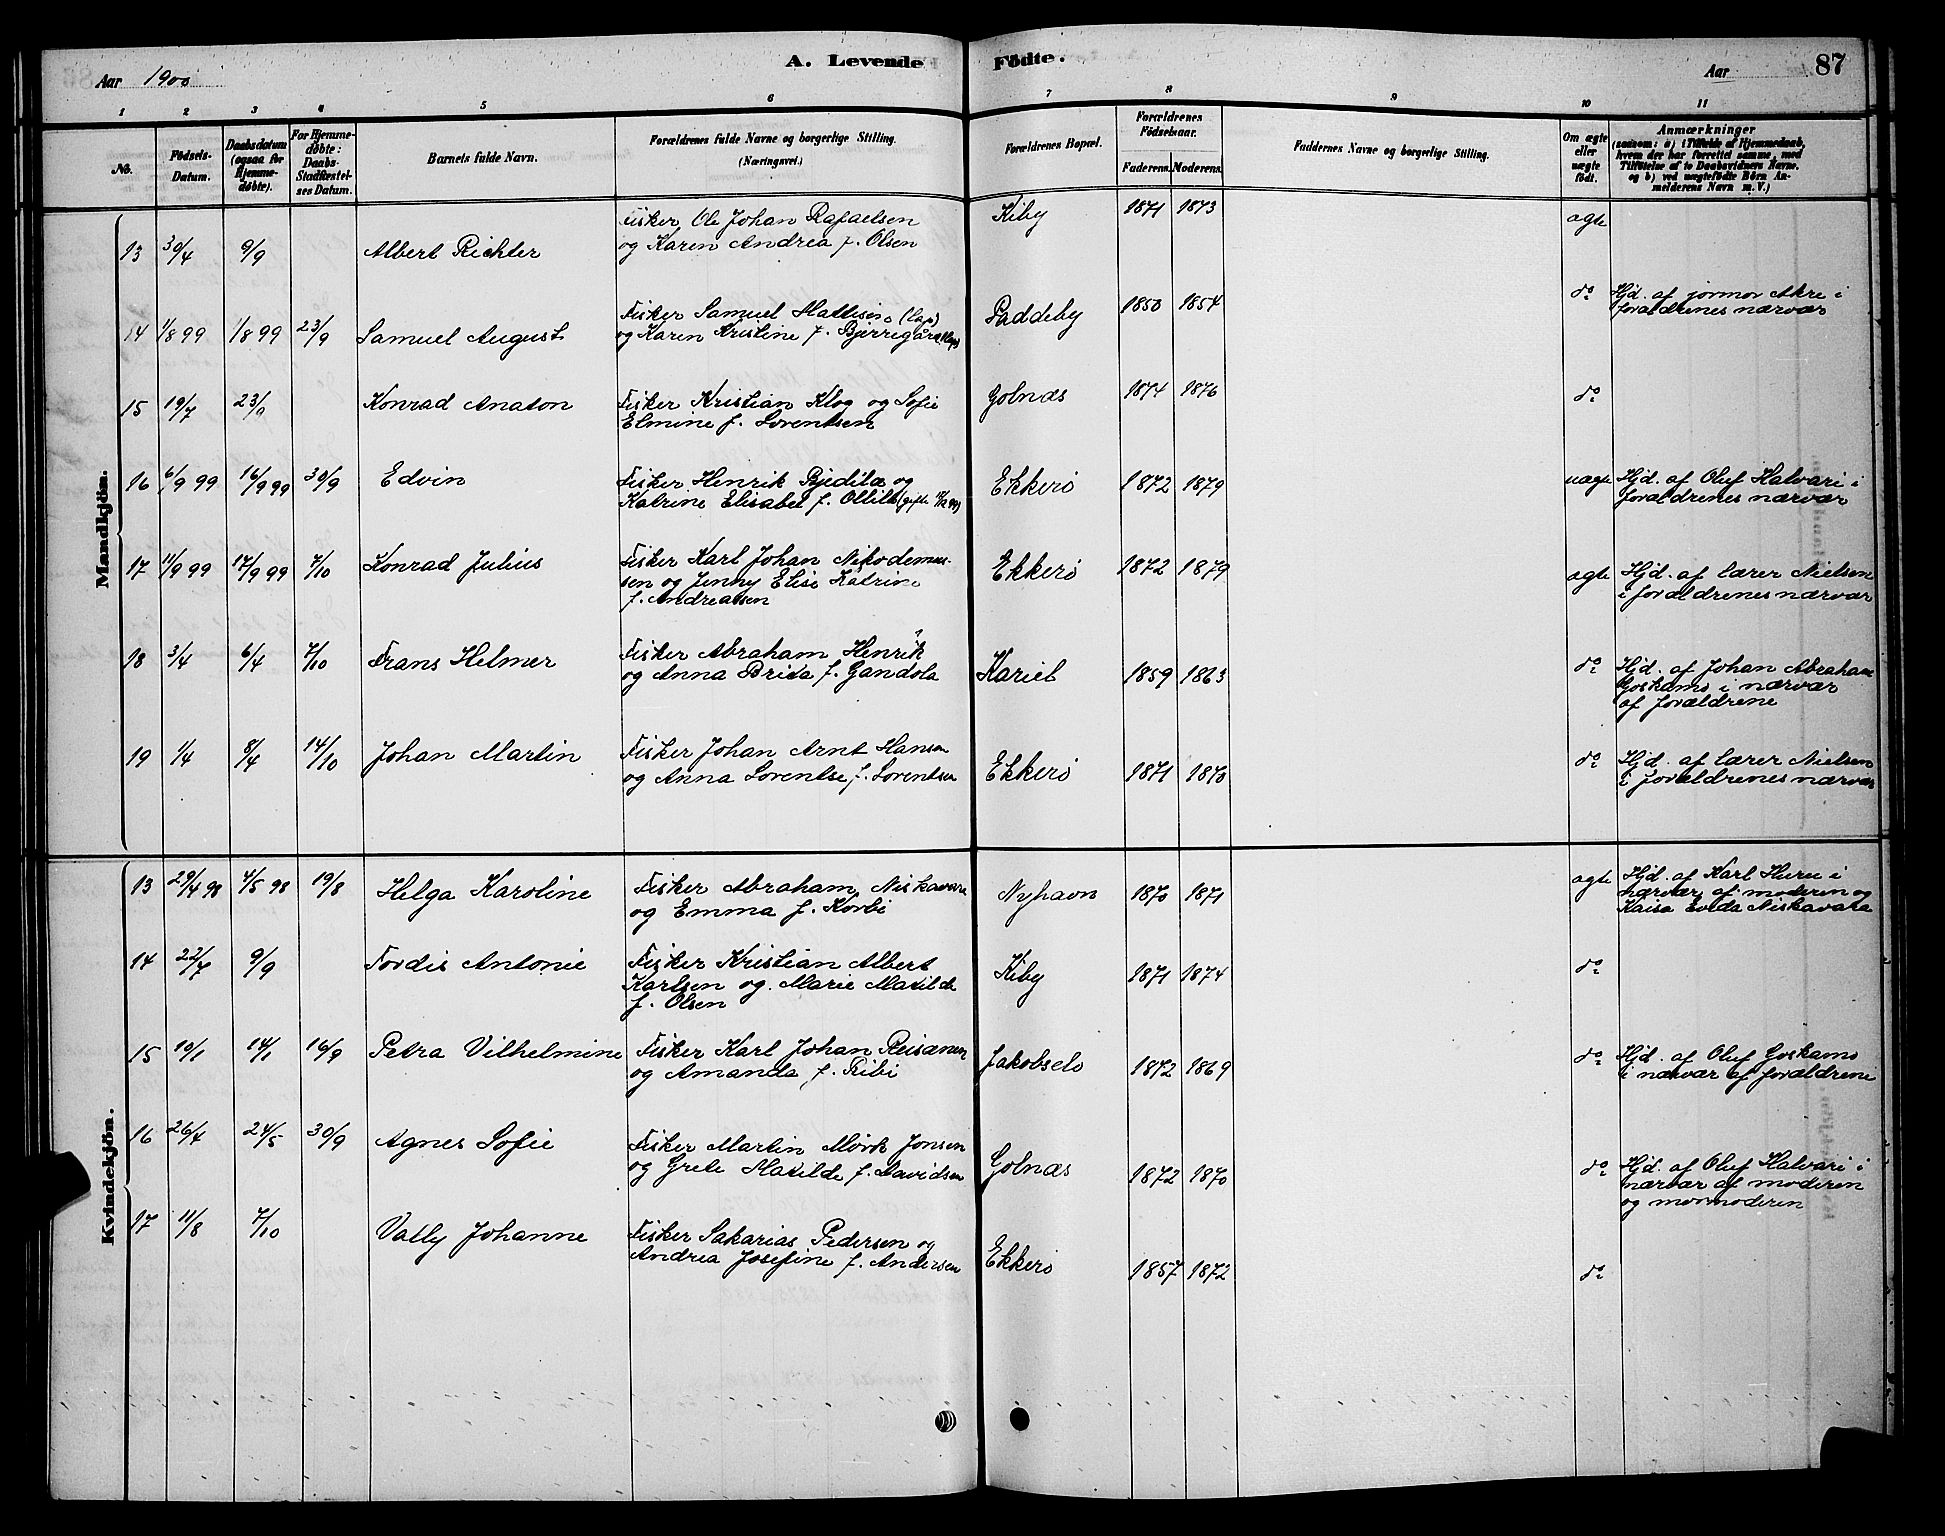 Aar 1900
A. Levende
Fødte.
Aar
87
1 2 3 4 5 6 7 8 9 10 11
No.
Fødsels-Datum.
Daabsdatum (ogsaa for Hjemmedøbte).
For Hjemmedøbte: Daabs-Stadfæstelses Datum.
Barnets fulde Navn.
Forældrenes fulde Navne og borgerlige Stilling. (Næringsvei.)
Forældrenes Bopæl.
Forældrenes Fødselsaar.
Faderens. Moderens.
Faddernes Navne og borgerlige Stilling.
Om ægte eller uægte født.
Anmærkninger
(saasom: a) i Tilfælde af Hjemmedaab, hvem der har forrettet samme, med Tilføielse af to Daabsvidners Navne, og b) ved uægtefødte Børn Anmelderens Navn m. V.)
Mandkjön.
13 30/4 9/9 Albert Richter
Fisker Ole Johan Rafaelsen
og Karen Andrea f. Olsen
Kiby 1871 1873 ægte
14 1/8 99 1/8 99 23/9 Samuel August
Fisker Samuel Mattisen (lap)
og Karen Kristine f. Bjerregård (lap)
Paddeby 1850 1854 do
Hjd. af jormor Akre i
forældrenes nærvær
15 19/7 23/9 Konrad Anaton
Fisker Kristian Klog og Sofie
Elmine f. Lorentsen
Golnæs 1874 1876 do
16 6/9 99 16/9 99 30/9 Edvin
Fisker Henrik Bjedilæ og
Katrine Elisabet f. Ollila (gifte
Ekkerø 1872 1879 uægte
Hjd. af Oluf Halvari i
forældrenes nærvær
17 11/9 99 17/9 99 7/10 Konrad Julius
Fisker Karl Johan Nikodemus-
sen og Jenny Elise Katrine
f. Andreassen
Ekkerø 1872 1879 ægte
Hjd. af lærer Nielsen
i forældrenes nærvær
18 3/4 6/4 7/10 Frans Helmer
Fisker Abraham Henrik
og Anna Brita f. Gandola
Kariel 1859 1863 do
Hjd. af Johan Abraham
Goskamo i nærvær
af forældrene
19 1/4 8/4 14/10 Johan Martin
Fisker Johan Arnt Hansen
og Anna Lorentse f. Lorentsen
Ekkerø 1871 1870 do
Hjd. af lærer Nielsen
i forældrenes nærvær
Kvindekjön.
13 29/4 98 4/5 98 19/8 Helga Karoline
Fisker Abraham Niskavara
og Emma f. Korbi
Nyhavn 1870 1871 ægte
Hjd. af Karl Huru i
nærvær af moderen og
Kaisa Evida Niskavara
14 22/7 9/9 Tordis Antonie
Fisker Kristian Albert
Karlsen og Marie Matilde
f. Olsen
Kiby 1871 1874 do
15 10/1 14/1 16/9 Petra Vilhelmine
Fisker Karl Johan Reisænen
og Amanda f. Ribi
Jakobselv 1872 1869 do
Hjd. af Oluf Goskamo
i nærvær af forældrene
16 26/4 24/5 30/9 Agnes Sofie
Fisker Martin Mørk Jonsen
og Grete Matilde f. Davidsen
Golnæs 1872 1870 do
Hjd. af Oluf Halvari i
nærvær af moderen
og mormoderen
17 11/8 7/10 Vally Johanne
Fisker Sakarias Pedersen og
Andrea Josefine f. Andersen
Ekkerø 1857 1872 do